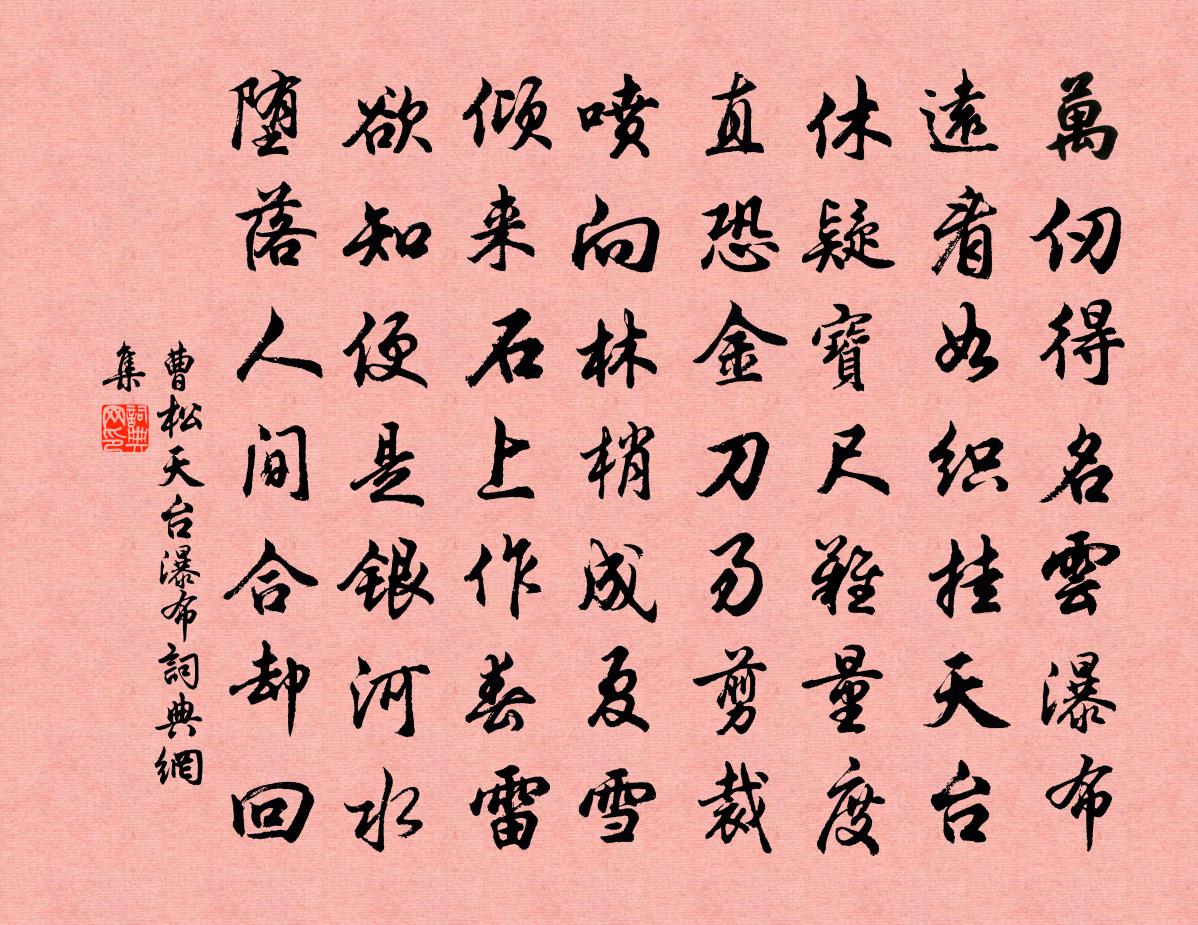 萬仞得名雲瀑布
遠看如织挂天台
休疑寶尺難量度
直恐金刀易剪裁
噴向林梢成夏雪
倾来石上作春雷
欲知便是银河水
堕落人间合却回
曹松天台瀑布詞典網
集
詞典
网印